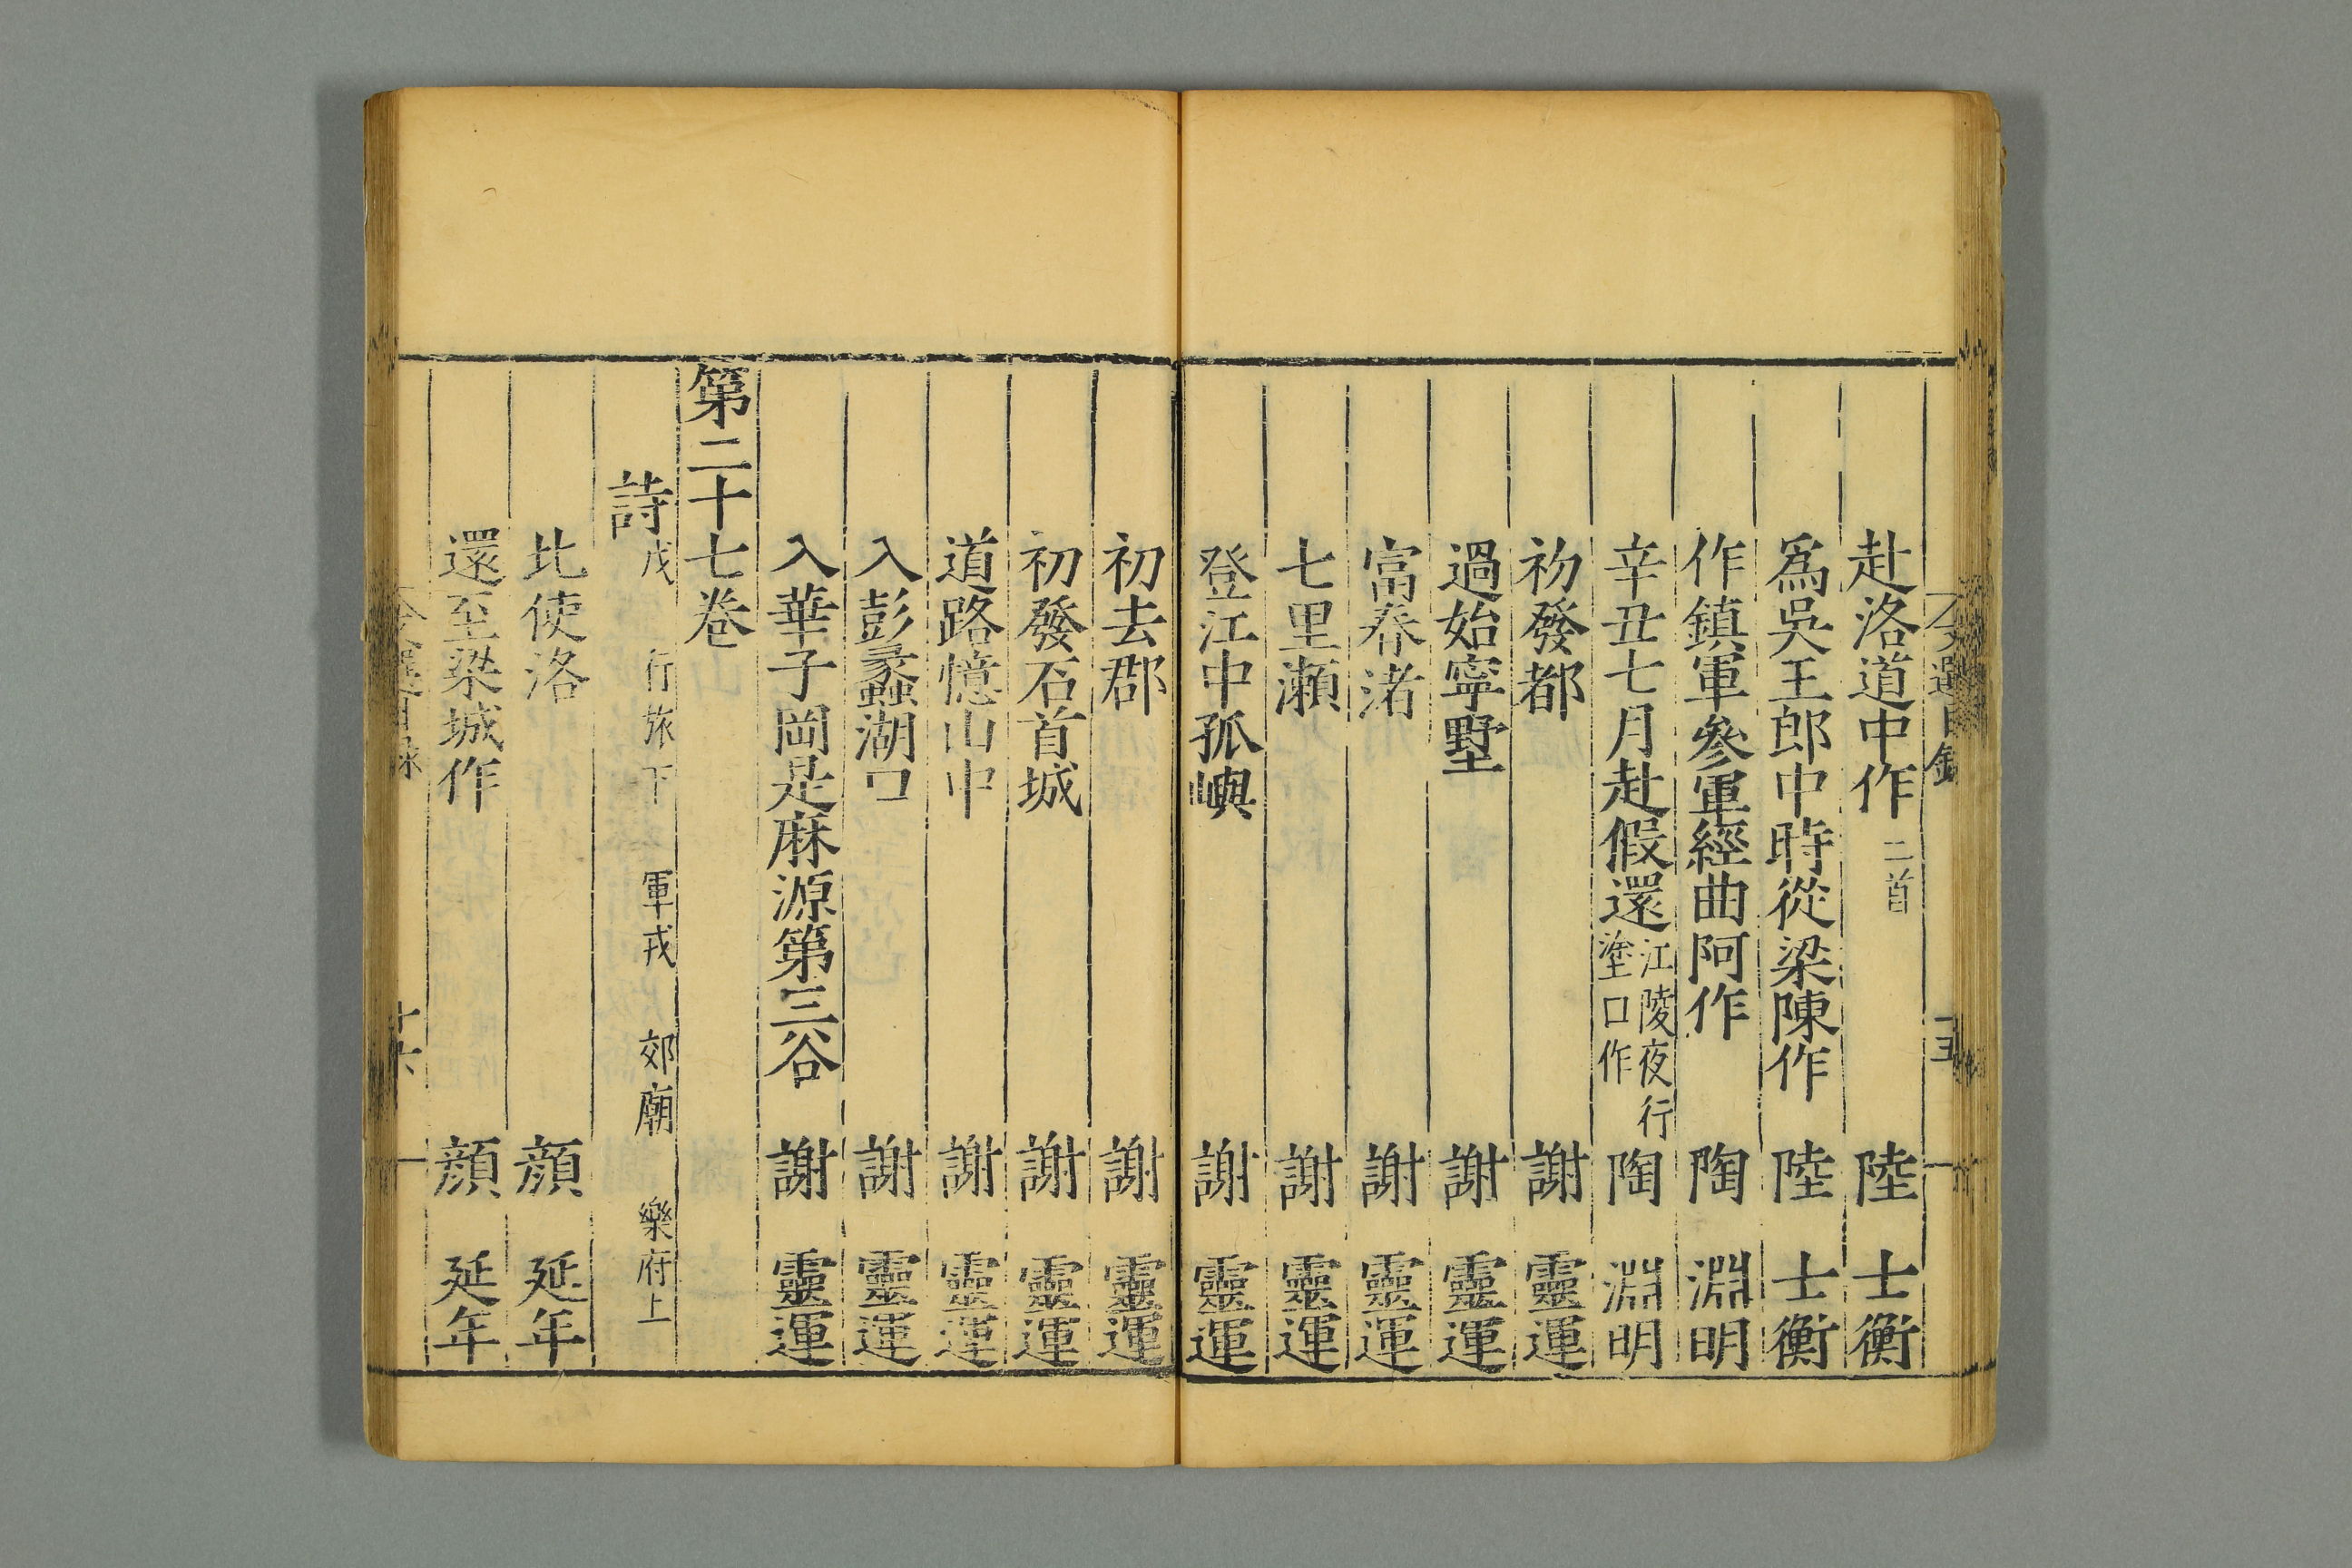 赴洛道中作 二首 陸 士衡
爲吳王郎中時從梁陳作 陸 士衡
作鎮軍參軍經曲阿作 陶 淵明
辛丑七月赴假還江陵夜行塗口作 陶 淵明
初發都 謝 靈運
過始寧墅 謝 靈運
富春渚 謝 靈運
七里瀨 謝 靈運
登江中孤嶼 謝 靈運
初去郡 謝 靈運
初發石首城 謝 靈運
道路憶山中 謝 靈運
入彭蠡湖口 謝 靈運
入華子岡是麻源第三谷 謝 靈運
第二十七卷
詩戊 行旅下 軍戎 郊廟 樂府上
北使洛 顔 延年
還至梁城作 顔 延年
十六